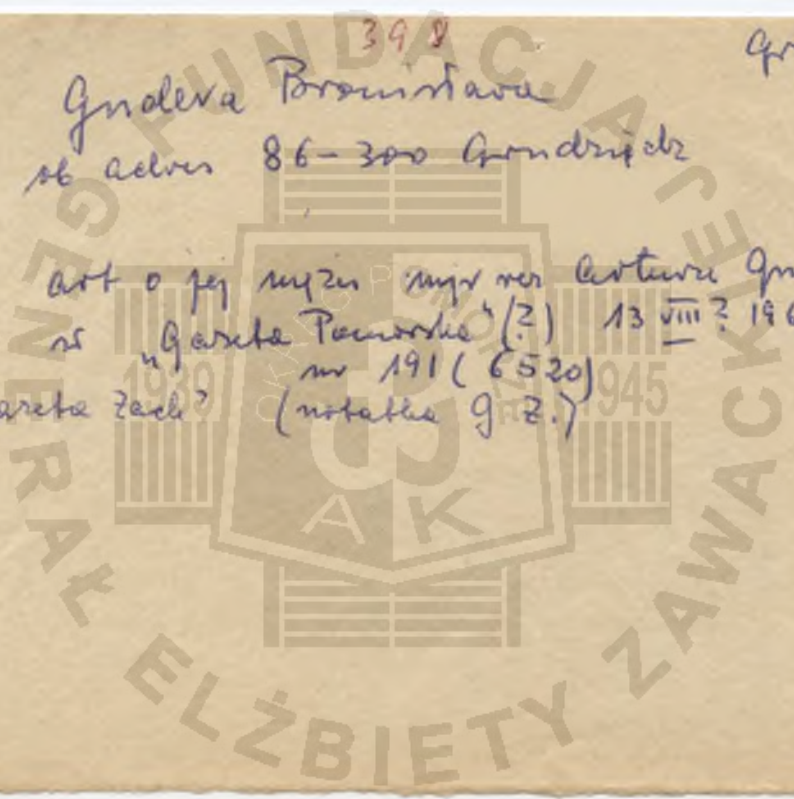 398
Gr
Gudera Bronisława
ob adres 86-300 Grudziądz
art o jej mężu mjr rez Arturze Gu
w „Gazeta Pomorska" (?) 13 VIII? 196
nr 191 (6520)
azeta Zach? (notatka G Z.)
FUNDACJA
GENERAŁ ELŻBIETY ZAWACKIEJ
1939 1945
AK